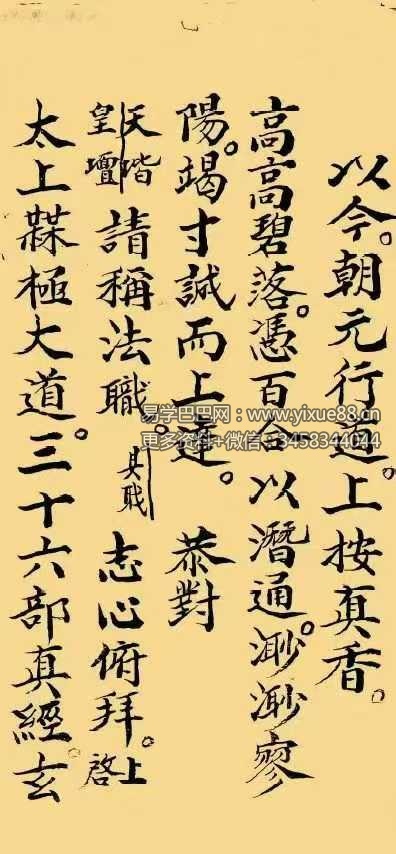 以今。朝元行道。上按真香。
高高碧落。憑百合以潛通。渺渺寥
陽。竭寸誠而上達。恭對
天階
皇壇
請稱法職。具戝志心俯拜。上啓
太上橆極大道。三十六部真經。玄
易学巴巴网：www.yixue88.cn
更多资料+微信：3458344044